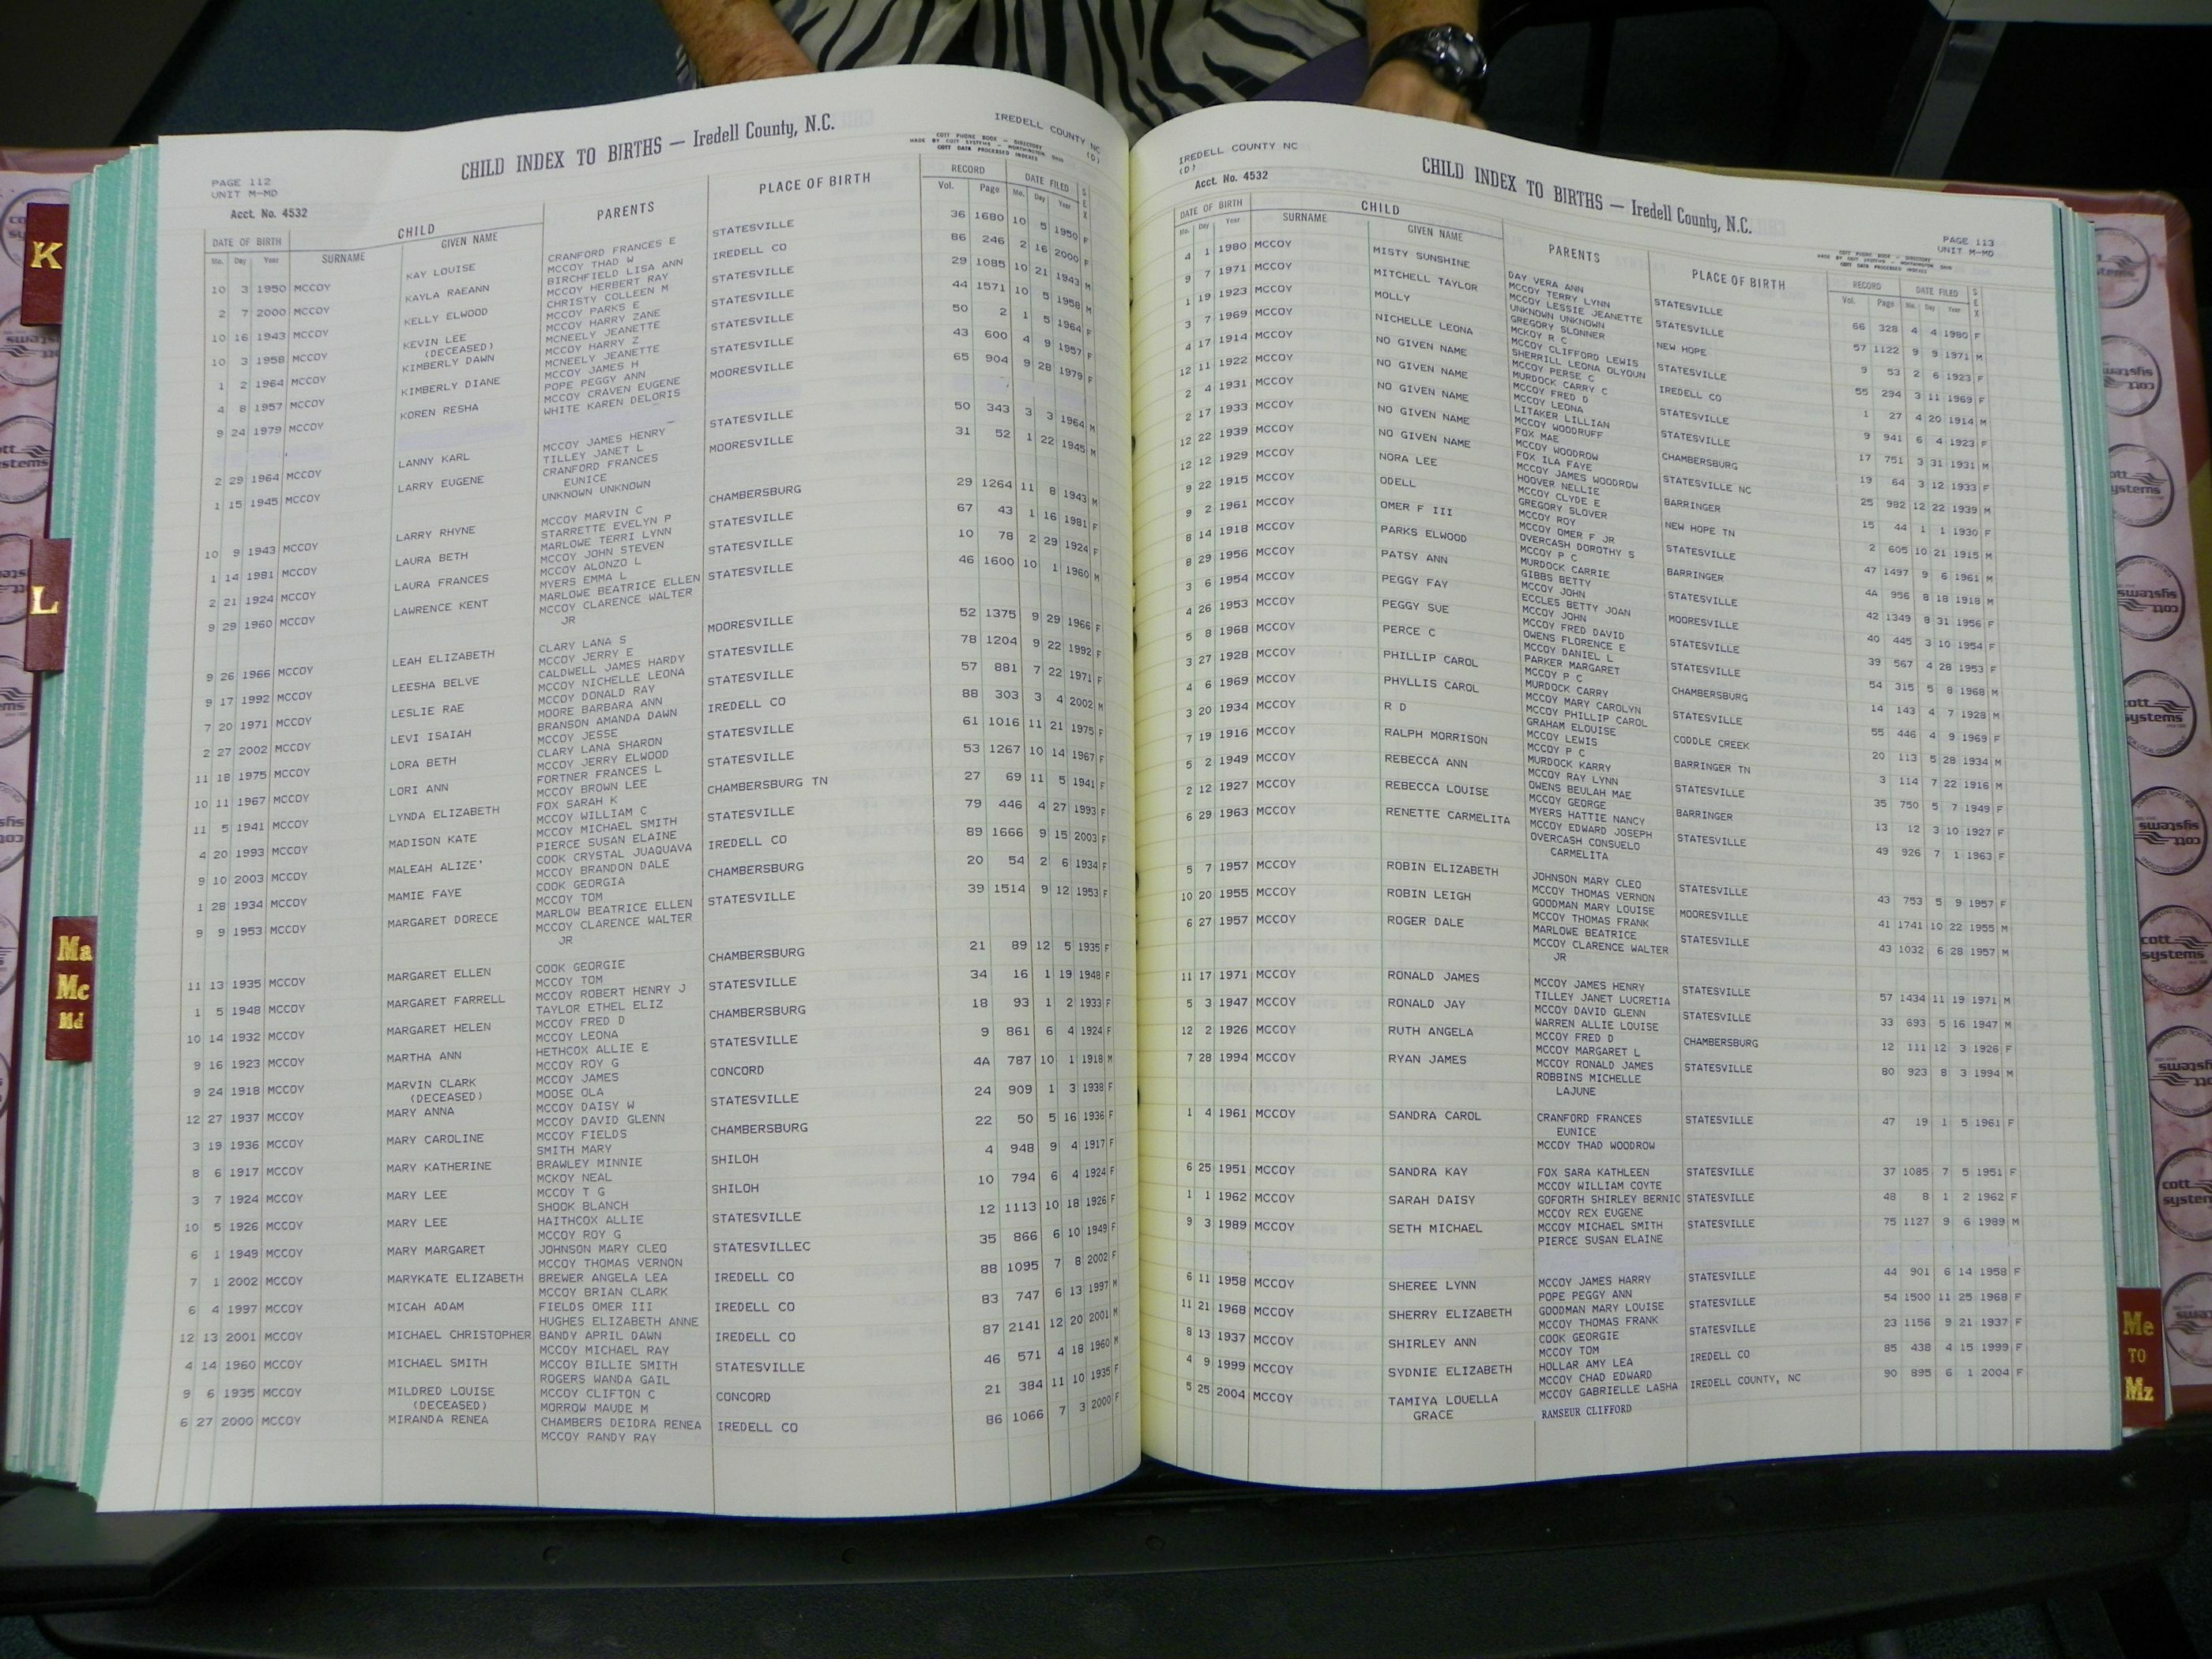 PAGE 112
UNIT M-MD
Acct. No. 4532
CHILD INDEX TO BIRTHS — Iredell County, N.C.
IREDELL COUNTY NC
(D)
COTT PHONE BOOK - DIRECTORY
MADE BY COTT SYSTEMS - WORTHINGTON, OHIO
COTT DATA PROCESSED INDEXES
DATE OF BIRTH CHILD PARENTS PLACE OF BIRTH RECORD DATE FILED SEX
Mo. Day Year SURNAME GIVEN NAME Vol. Page Mo. Day Year
10 3 1950 MCCOY KAY LOUISE CRANFORD FRANCES E STATESVILLE 36 1680 10 5 1950 F
MCCOY THAD W
2 7 2000 MCCOY KAYLA RAEANN BIRCHFIELD LISA ANN IREDELL CO 86 246 2 16 2000 F
MCCOY HERBERT RAY
10 16 1943 MCCOY KELLY ELWOOD CHRISTY COLLEEN M STATESVILLE 29 1085 10 21 1943 M
MCCOY PARKS E
10 3 1958 MCCOY KEVIN LEE MCCOY HARRY ZANE STATESVILLE 44 1571 10 5 1958 M
(DECEASED) MCNEELY JEANETTE
1 2 1964 MCCOY KIMBERLY DAWN MCCOY HARRY Z STATESVILLE 50 2 1 5 1964 F
MCNEELY JEANETTE
4 8 1957 MCCOY KIMBERLY DIANE MCCOY JAMES H STATESVILLE 43 600 4 9 1957 F
POPE PEGGY ANN
9 24 1979 MCCOY KOREN RESHA MCCOY CRAVEN EUGENE MOORESVILLE 65 904 9 28 1979 F
WHITE KAREN DELORIS
2 29 1964 MCCOY LANNY KARL MCCOY JAMES HENRY STATESVILLE 50 343 3 3 1964 M
TILLEY JANET L
1 15 1945 MCCOY LARRY EUGENE CRANFORD FRANCES MOORESVILLE 31 52 1 22 1945 M
EUNICE
UNKNOWN UNKNOWN
10 9 1943 MCCOY LARRY RHYNE MCCOY MARVIN C CHAMBERSBURG 29 1264 11 8 1943 M
STARRETTE EVELYN P
1 14 1981 MCCOY LAURA BETH MARLOWE TERRI LYNN STATESVILLE 67 43 1 16 1981 F
MCCOY JOHN STEVEN
2 21 1924 MCCOY LAURA FRANCES MCCOY ALONZO L STATESVILLE 10 78 2 29 1924 F
MYERS EMMA L
9 29 1960 MCCOY LAWRENCE KENT MARLOWE BEATRICE ELLEN STATESVILLE 46 1600 10 1 1960 M
MCCOY CLARENCE WALTER
JR
9 26 1966 MCCOY LEAH ELIZABETH CLARY LANA S MOORESVILLE 52 1375 9 29 1966 F
MCCOY JERRY E
9 17 1992 MCCOY LEESHA BELVE CALDWELL JAMES HARDY STATESVILLE 78 1204 9 22 1992 F
MCCOY NICHELLE LEONA
7 20 1971 MCCOY LESLIE RAE MCCOY DONALD RAY STATESVILLE 57 881 7 22 1971 F
MOORE BARBARA ANN
2 27 2002 MCCOY LEVI ISAIAH BRANSON AMANDA DAWN IREDELL CO 88 303 3 4 2002 M
MCCOY JESSE
11 18 1975 MCCOY LORA BETH CLARY LANA SHARON STATESVILLE 61 1016 11 21 1975 F
MCCOY JERRY ELWOOD
10 11 1967 MCCOY LORI ANN FORTNER FRANCES L STATESVILLE 53 1267 10 14 1967 F
MCCOY BROWN LEE
11 5 1941 MCCOY LYNDA ELIZABETH FOX SARAH K CHAMBERSBURG TN 27 69 11 5 1941 F
MCCOY WILLIAM C
4 20 1993 MCCOY MADISON KATE MCCOY MICHAEL SMITH STATESVILLE 79 446 4 27 1993 F
PIERCE SUSAN ELAINE
9 10 2003 MCCOY MALEAH ALIZE' COOK CRYSTAL JUAQUAVA IREDELL CO 89 1666 9 15 2003 F
MCCOY BRANDON DALE
1 28 1934 MCCOY MAMIE FAYE COOK GEORGIA CHAMBERSBURG 20 54 2 6 1934 F
MCCOY TOM
9 9 1953 MCCOY MARGARET DORECE MARLOW BEATRICE ELLEN STATESVILLE 39 1514 9 12 1953 F
MCCOY CLARENCE WALTER
JR
11 13 1935 MCCOY MARGARET ELLEN COOK GEORGIE CHAMBERSBURG 21 89 12 5 1935 F
MCCOY TOM
1 5 1948 MCCOY MARGARET FARRELL MCCOY ROBERT HENRY J STATESVILLE 34 16 1 19 1948 F
TAYLOR ETHEL ELIZ
10 14 1932 MCCOY MARGARET HELEN MCCOY FRED D CHAMBERSBURG 18 93 1 2 1933 F
MCCOY LEONA
9 16 1923 MCCOY MARTHA ANN HETHCOX ALLIE E STATESVILLE 9 861 6 4 1924 F
MCCOY ROY G
9 24 1918 MCCOY MARVIN CLARK MCCOY JAMES CONCORD 4A 787 10 1 1918 M
(DECEASED) MOOSE OLA
12 27 1937 MCCOY MARY ANNA MCCOY DAISY W STATESVILLE 24 909 1 3 1938 F
MCCOY DAVID GLENN
3 19 1936 MCCOY MARY CAROLINE MCCOY FIELDS CHAMBERSBURG 22 50 5 16 1936 F
SMITH MARY
8 6 1917 MCCOY MARY KATHERINE BRAWLEY MINNIE SHILOH 4 948 9 4 1917 F
MCKOY NEAL
3 7 1924 MCCOY MARY LEE MCCOY T G SHILOH 10 794 6 4 1924 F
SHOOK BLANCH
10 5 1926 MCCOY MARY LEE HAITHCOX ALLIE STATESVILLE 12 1113 10 18 1926 F
MCCOY ROY G
6 1 1949 MCCOY MARY MARGARET JOHNSON MARY CLEO STATESVILLEC 35 866 6 10 1949 F
MCCOY THOMAS VERNON
7 1 2002 MCCOY MARYKATE ELIZABETH BREWER ANGELA LEA IREDELL CO 88 1095 7 8 2002 F
MCCOY BRIAN CLARK
6 4 1997 MCCOY MICAH ADAM FIELDS OMER III IREDELL CO 83 747 6 13 1997 M
HUGHES ELIZABETH ANNE
12 13 2001 MCCOY MICHAEL CHRISTOPHER BANDY APRIL DAWN IREDELL CO 87 2141 12 20 2001 M
MCCOY MICHAEL RAY
4 14 1960 MCCOY MICHAEL SMITH MCCOY BILLIE SMITH STATESVILLE 46 571 4 18 1960 M
ROGERS WANDA GAIL
9 6 1935 MCCOY MILDRED LOUISE MCCOY CLIFTON C CONCORD 21 384 11 10 1935 F
(DECEASED) MORROW MAUDE M
6 27 2000 MCCOY MIRANDA RENEA CHAMBERS DEIDRA RENEA IREDELL CO 86 1066 7 3 2000 F
MCCOY RANDY RAY
IREDELL COUNTY NC
(D)
Acct. No. 4532
CHILD INDEX TO BIRTHS — Iredell County, N.C.
PAGE 113
UNIT M-MD
COTT PHONE BOOK - DIRECTORY
MADE BY COTT SYSTEMS - WORTHINGTON, OHIO
COTT DATA PROCESSED INDEXES
DATE OF BIRTH CHILD PARENTS PLACE OF BIRTH RECORD DATE FILED SEX
Mo. Day Year SURNAME GIVEN NAME Vol. Page Mo. Day Year
4 1 1980 MCCOY MISTY SUNSHINE DAY VERA ANN STATESVILLE 66 328 4 4 1980 F
MCCOY TERRY LYNN
9 7 1971 MCCOY MITCHELL TAYLOR MCCOY LESSIE JEANETTE STATESVILLE 57 1122 9 9 1971 M
UNKNOWN UNKNOWN
1 19 1923 MCCOY MOLLY GREGORY SLONNER NEW HOPE 9 53 2 6 1923 F
MCKOY R C
3 7 1969 MCCOY NICHELLE LEONA MCCOY CLIFFORD LEWIS STATESVILLE 55 294 3 11 1969 F
SHERRILL LEONA OLYOUN
4 17 1914 MCCOY NO GIVEN NAME MCCOY PERSE C IREDELL CO 1 27 4 20 1914 M
MURDOCK CARRY C
12 11 1922 MCCOY NO GIVEN NAME MCCOY FRED D STATESVILLE 9 941 6 4 1923 F
MCCOY LEONA
2 4 1931 MCCOY NO GIVEN NAME LITAKER LILLIAN STATESVILLE 17 751 3 31 1931 M
MCCOY WOODRUFF
2 17 1933 MCCOY NO GIVEN NAME FOX MAE CHAMBERSBURG 19 64 3 12 1933 F
MCCOY WOODROW
12 22 1939 MCCOY NO GIVEN NAME FOX ILA FAYE STATESVILLE NC 25 992 12 22 1939 M
MCCOY JAMES WOODROW
12 12 1929 MCCOY NORA LEE HOOVER NELLIE BARRINGER 15 44 1 1 1930 F
MCCOY CLYDE E
9 22 1915 MCCOY ODELL GREGORY SLOVER NEW HOPE TN 2 605 10 21 1915 M
MCCOY ROY
9 2 1961 MCCOY OMER F III MCCOY OMER F JR STATESVILLE 47 1497 9 6 1961 M
OVERCASH DOROTHY S
8 14 1918 MCCOY PARKS ELWOOD MCCOY P C BARRINGER 4A 956 8 18 1918 M
MURDOCK CARRIE
8 29 1956 MCCOY PATSY ANN GIBBS BETTY STATESVILLE 42 1349 8 31 1956 F
MCCOY JOHN
3 6 1954 MCCOY PEGGY FAY ECCLES BETTY JOAN MOORESVILLE 40 445 3 10 1954 F
MCCOY JOHN
4 26 1953 MCCOY PEGGY SUE MCCOY FRED DAVID STATESVILLE 39 567 4 28 1953 F
OWENS FLORENCE E
5 8 1968 MCCOY PERCE C MCCOY DANIEL L STATESVILLE 54 315 5 8 1968 M
PARKER MARGARET
3 27 1928 MCCOY PHILLIP CAROL MCCOY P C CHAMBERSBURG 14 143 4 7 1928 M
MURDOCK CARRY
4 6 1969 MCCOY PHYLLIS CAROL MCCOY MARY CAROLYN STATESVILLE 55 446 4 9 1969 F
MCCOY PHILLIP CAROL
3 20 1934 MCCOY R D GRAHAM ELOUISE CODDLE CREEK 20 113 5 28 1934 M
MCCOY LEWIS
7 19 1916 MCCOY RALPH MORRISON MCCOY P C BARRINGER TN 3 114 7 22 1916 M
MURDOCK KARRY
5 2 1949 MCCOY REBECCA ANN MCCOY RAY LYNN STATESVILLE 35 750 5 7 1949 F
OWENS BEULAH MAE
2 12 1927 MCCOY REBECCA LOUISE MCCOY GEORGE BARRINGER 13 12 3 10 1927 F
MYERS HATTIE NANCY
6 29 1963 MCCOY RENETTE CARMELITA MCCOY EDWARD JOSEPH STATESVILLE 49 926 7 1 1963 F
OVERCASH CONSUELO
CARMELITA
5 7 1957 MCCOY ROBIN ELIZABETH JOHNSON MARY CLEO STATESVILLE 43 753 5 9 1957 F
MCCOY THOMAS VERNON
10 20 1955 MCCOY ROBIN LEIGH GOODMAN MARY LOUISE MOORESVILLE 41 1741 10 22 1955 M
MCCOY THOMAS FRANK
6 27 1957 MCCOY ROGER DALE MARLOWE BEATRICE STATESVILLE 43 1032 6 28 1957 M
MCCOY CLARENCE WALTER
JR
11 17 1971 MCCOY RONALD JAMES MCCOY JAMES HENRY STATESVILLE 57 1434 11 19 1971 M
TILLEY JANET LUCRETIA
5 3 1947 MCCOY RONALD JAY MCCOY DAVID GLENN STATESVILLE 33 693 5 16 1947 M
WARREN ALLIE LOUISE
12 2 1926 MCCOY RUTH ANGELA MCCOY FRED D CHAMBERSBURG 12 111 12 3 1926 F
MCCOY MARGARET L
7 28 1994 MCCOY RYAN JAMES MCCOY RONALD JAMES STATESVILLE 80 923 8 3 1994 M
ROBBINS MICHELLE
LAJUNE
1 4 1961 MCCOY SANDRA CAROL CRANFORD FRANCES STATESVILLE 47 19 1 5 1961 F
EUNICE
MCCOY THAD WOODROW
6 25 1951 MCCOY SANDRA KAY FOX SARA KATHLEEN STATESVILLE 37 1085 7 5 1951 F
MCCOY WILLIAM COYTE
1 1 1962 MCCOY SARAH DAISY GOFORTH SHIRLEY BERNIC STATESVILLE 48 8 1 2 1962 F
MCCOY REX EUGENE
9 3 1989 MCCOY SETH MICHAEL MCCOY MICHAEL SMITH STATESVILLE 75 1127 9 6 1989 M
PIERCE SUSAN ELAINE
6 11 1958 MCCOY SHEREE LYNN MCCOY JAMES HARRY STATESVILLE 44 901 6 14 1958 F
POPE PEGGY ANN
11 21 1968 MCCOY SHERRY ELIZABETH GOODMAN MARY LOUISE STATESVILLE 54 1500 11 25 1968 F
MCCOY THOMAS FRANK
8 13 1937 MCCOY SHIRLEY ANN COOK GEORGIE STATESVILLE 23 1156 9 21 1937 F
MCCOY TOM
4 9 1999 MCCOY SYDNIE ELIZABETH HOLLAR AMY LEA IREDELL CO 85 438 4 15 1999 F
MCCOY CHAD EDWARD
5 25 2004 MCCOY TAMIYA LOUELLA MCCOY GABRIELLE LASHA IREDELL COUNTY, NC 90 895 6 1 2004 F
GRACE RAMSEUR CLIFFORD
K
L
Ma
Mc
Md
Me
TO
Mz
cott
systems